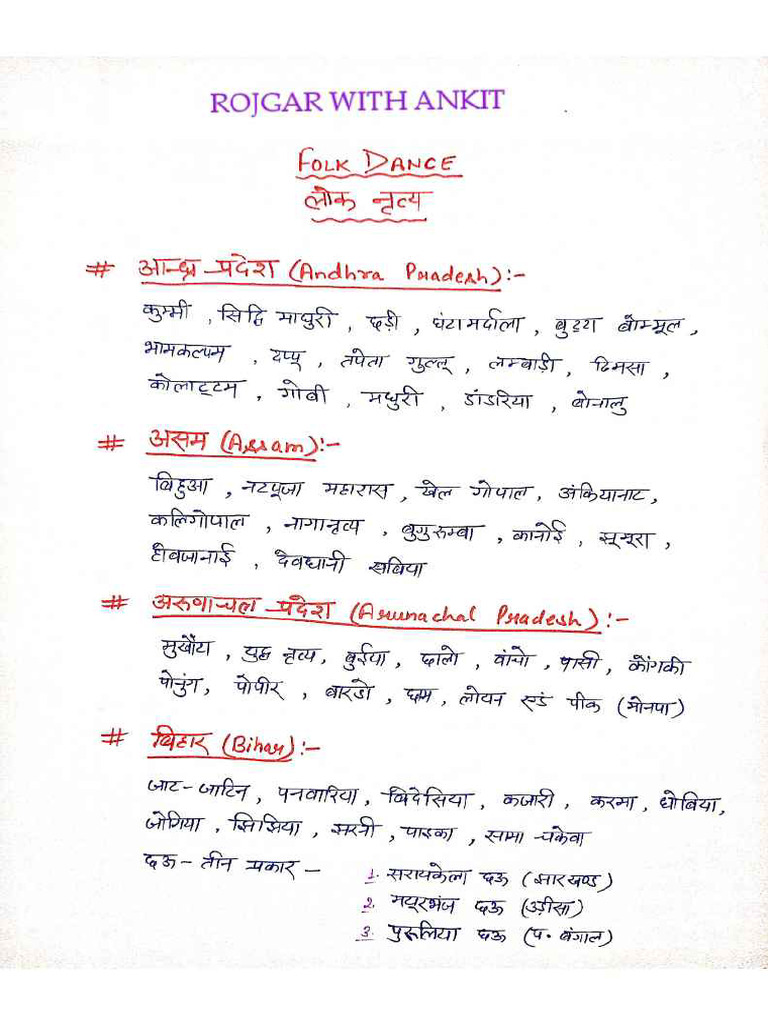 ROJGAR WITH ANKIT
FOLK DANCE
लोक नृत्य
# आन्ध्र प्रदेश (Andhra Pradesh) :-
कुम्मी , सिद्धि माधुरी , छड़ी , घंटामर्दाला , बुट्टा बोम्मूल ,
भामकल्पम , दप्पू , तपेता गुल्लू , लम्बाड़ी , ढिमसा ,
कोलाट्टम , गोबी , मधुरी , डांडरिया , बोनालु
# असम (Assam) :-
बिहुआ , नटपूजा महारास , खेल गोपाल , अंकियानाट ,
कलिगोपाल , नागानृत्य , बुगुरुम्बा , कानोई , झूमूरा ,
होबजानाई , देवधानी सबिया
# अरुणाचल प्रदेश (Arunachal Pradesh) :-
मुखौटा , युद्ध नृत्य , बुईया , छालो , वांचो , पासी , कोंगकी
पोनुंग , पोपीर , बारडो , छम , लोयन एडं पीक (मोनपा)
# बिहार (Bihar) :-
जाट - जाटिन , पनवारिया , बिदेसिया , कजारी , करमा , धोबिया ,
जोगिया , झिझिया , झरनी , पाइका , सामा चकेवा
छऊ - तीन प्रकार - 1. सरायकेला छऊ (झारखण्ड)
2. मयूरभंज छऊ (उड़ीसा)
3. पुरूलिया छऊ (प. बंगाल)